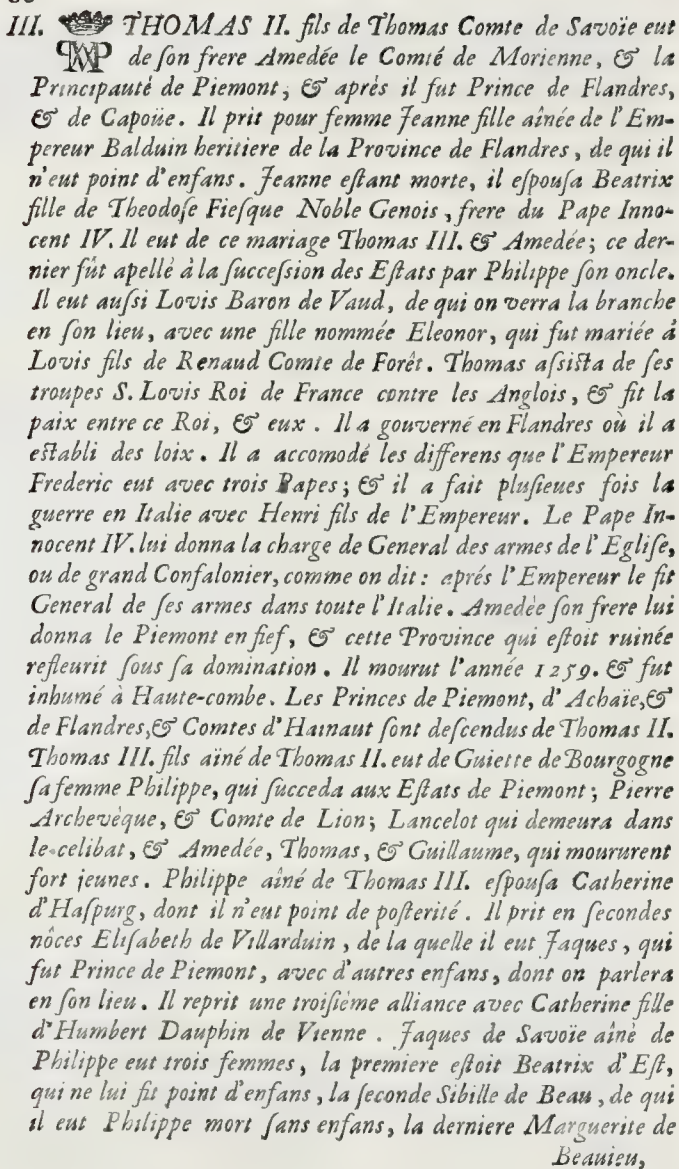 III. THOMAS II. fils de Thomas Comte de Savoïe eut
de ſon frere Amedée le Comté de Morienne, & la
Principauté de Piemont, & après il fut Prince de Flandres,
& de Capoüe. Il prit pour femme Jeanne fille aînée de l'Em-
pereur Balduin heritiere de la Province de Flandres, de qui il
n'eut point d'enfans. Jeanne eſtant morte, il eſpouſa Beatrix
fille de Theodoſe Fieſque Noble Genois, frere du Pape Inno-
cent IV. Il eut de ce mariage Thomas III. & Amedée; ce der-
nier fût apellè à la ſucceſsion des Eſtats par Philippe ſon oncle.
Il eut auſsi Lovis Baron de Vaud, de qui on verra la branche
en ſon lieu, avec une fille nommée Eleonor, qui fut mariée à
Lovis fils de Renaud Comte de Forêt. Thomas aſsiſta de ſes
troupes S. Lovis Roi de France contre les Anglois, & fit la
paix entre ce Roi, & eux. Il a gouverné en Flandres où il a
eſtabli des loix. Il a accomodé les differens que l'Empereur
Frederic eut avec trois Papes; & il a fait pluſieues fois la
guerre en Italie avec Henri fils de l'Empereur. Le Pape In-
nocent IV. lui donna la charge de General des armes de l'Egliſe,
ou de grand Confalonier, comme on dit: aprés l'Empereur le fit
General de ſes armes dans toute l'Italie. Amedèe ſon frere lui
donna le Piemont en fief, & cette Province qui eſtoit ruinée
refleurit ſous ſa domination. Il mourut l'année 1259. & fut
inhumé à Haute-combe. Les Princes de Piemont, d'Achaïe, &
de Flandres, & Comtes d'Hainaut ſont deſcendus de Thomas II.
Thomas III. fils aîné de Thomas II. eut de Guiette de Bourgogne
ſa femme Philippe, qui ſucceda aux Eſtats de Piemont; Pierre
Archevèque, & Comte de Lion; Lancelot qui demeura dans
le celibat, & Amedée, Thomas, & Guillaume, qui moururent
fort jeunes. Philippe aîné de Thomas III. eſpouſa Catherine
d'Haſpurg, dont il n'eut point de poſterité. Il prit en ſecondes
nôces Eliſabeth de Villarduin, de la quelle il eut Jaques, qui
fut Prince de Piemont, avec d'autres enfans, dont on parlera
en ſon lieu. Il reprit une troiſième alliance avec Catherine fille
d'Humbert Dauphin de Vienne. Jaques de Savoïe aînè de
Philippe eut trois femmes, la premiere eſtoit Beatrix d'Eſt,
qui ne lui fit point d'enfans, la ſeconde Sibille de Beau, de qui
il eut Philippe mort ſans enfans, la derniere Marguerite de
Beauieu,